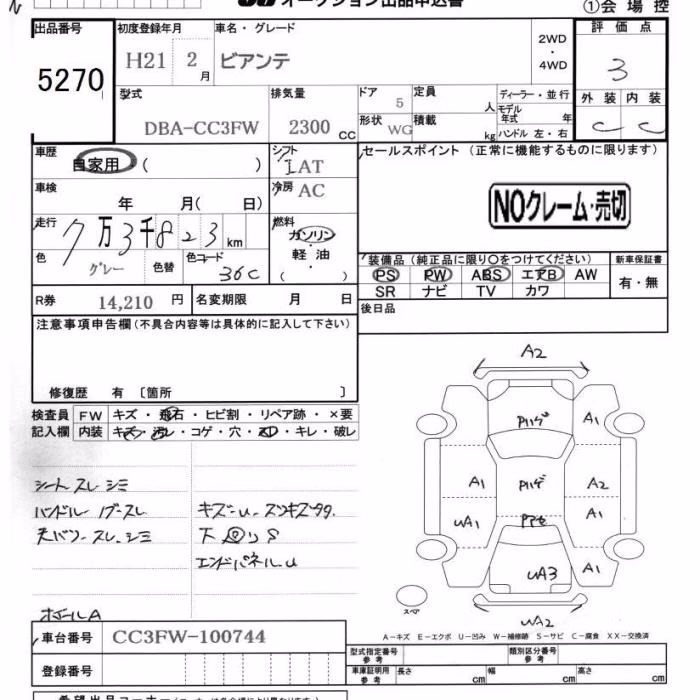 オークション出品申込書
①会場控
出品番号 初度登録年月 車名・グレード 評価点
5270 H21 2月 ビアンテ 2WD・4WD 3
型式 排気量 ドア 定員 ディーラー・並行 外装 内装
DBA-CC3FW 2300CC 5 人 モデル年式 年 C C
形状 WG 積載 kg ハンドル 左・右
車歴 シフト セールスポイント (正常に機能するものに限ります)
自家用 ( ) IAT
車検 冷房 AC
年 月( 日) NOクレーム・売切
走行 燃料
7万3千823km ガソリン
色 色替 色コード 軽油 装備品(純正品に限り○をつけてください) 新車保証書
グレー 36C ( ) PS PW ABS エアB AW 有・無
SR ナビ TV カワ
R券 14,210円 名変期限 月 日 後日品
注意事項申告欄(不具合内容等は具体的に記入して下さい)
修復歴 有 〔箇所 〕
検査員 FW キズ・飛石・ヒビ割・リペア跡・×要
記入欄 内装 キズ・汚レ・コゲ・穴・・キレ・破レ
シート スレ シミ
ハンドル スレ キズ-U
スレ、シミ 下回りS
エンドパネルU
A
A2
A1
A1 A2
UA1 A1
UA3 A1
スペア
A-キズ E-エクボ U-凹み W-補修跡 S-サビ C-腐食 XX-交換済
車台番号 CC3FW-100744
型式指定番号 参考 類別区分番号 参考
登録番号 車庫証明用 参考 長さ cm 幅 cm 高さ cm